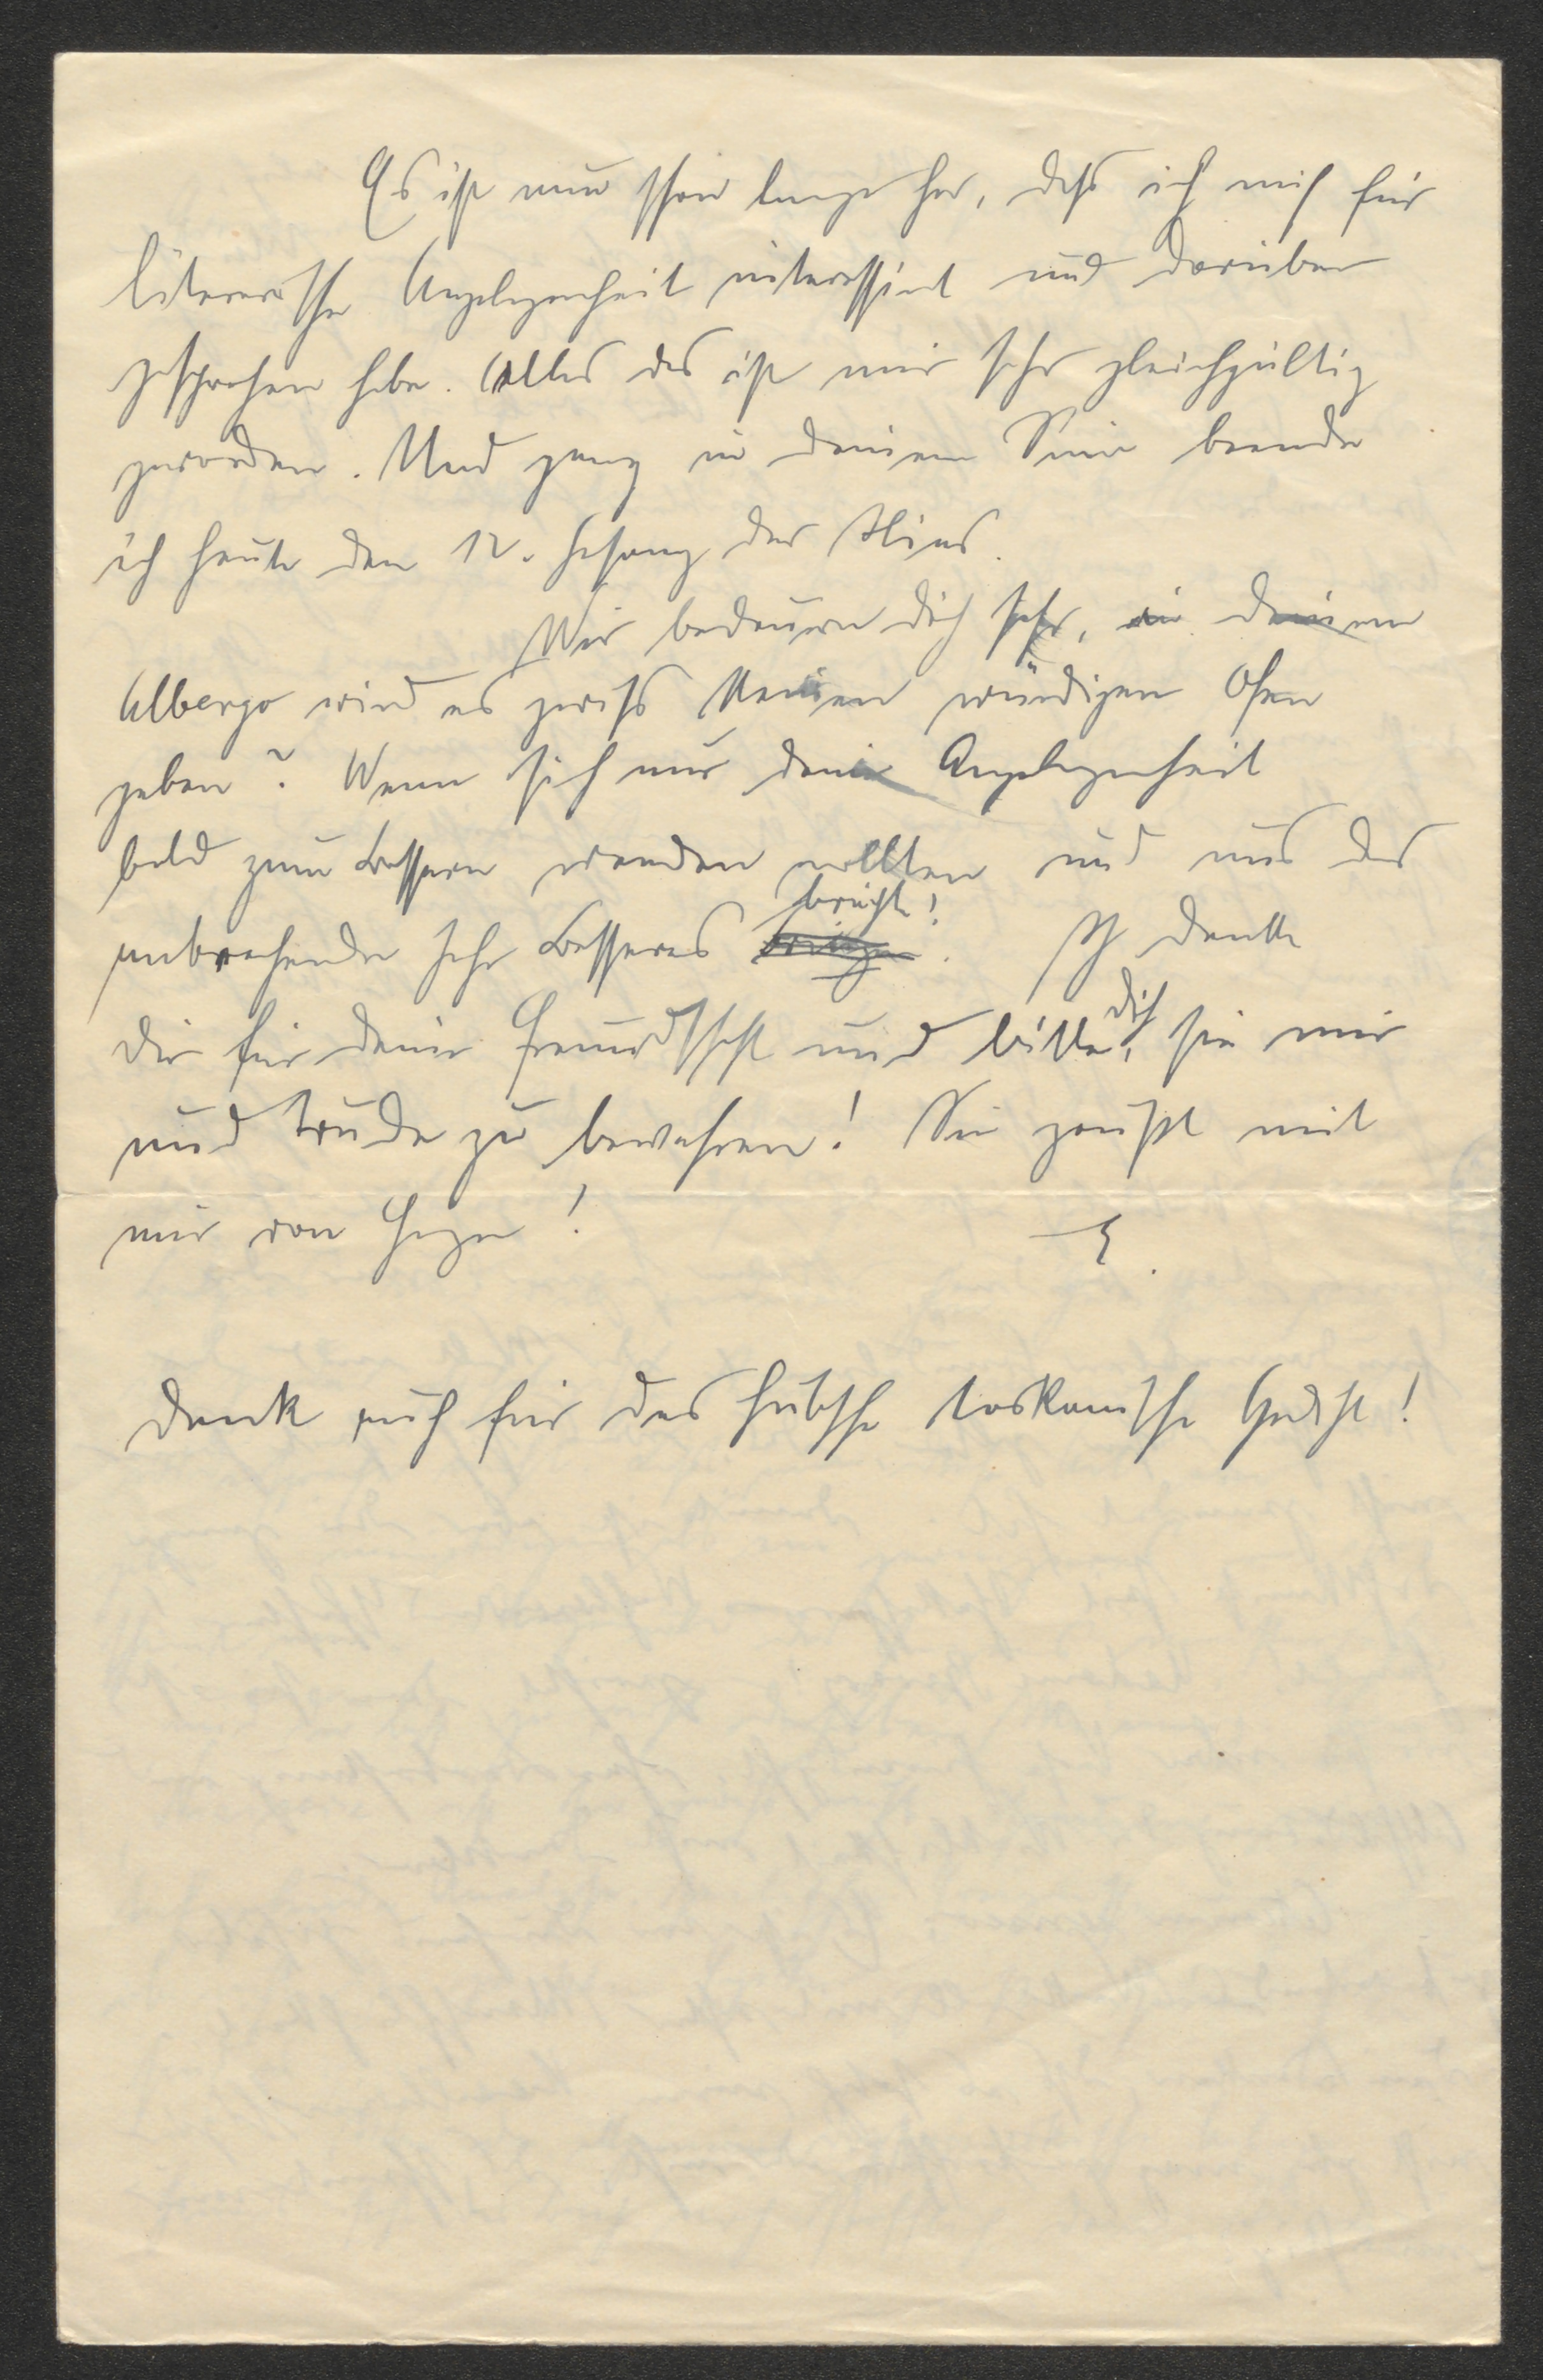 Es ist nun schon lange her, dass ich mich für
literarische Angelegenheit interessiert und darüber
gesprochen habe. Alles das ist mir sehr gleichgültig
geworden. Und ganz in deinem Sinn beende
ich heute den 12. Gesang der Ilias.
Wir bedauern dich sehr, in deinem
Albergo wird es gewiss keinen würdigen Ofen
geben? Wenn sich nur deine Angelegenheit
bald zum Bessern wenden wollten und uns das
anbrechende Jahr Besseres brächte! Ich danke
dir für deine Freundschaft und bitte dich, sie mir
und Trude zu bewahren! Sie grüßt mit
mir von Herzen!
E.
Dank auch für das hübsche toskanische Gedicht!